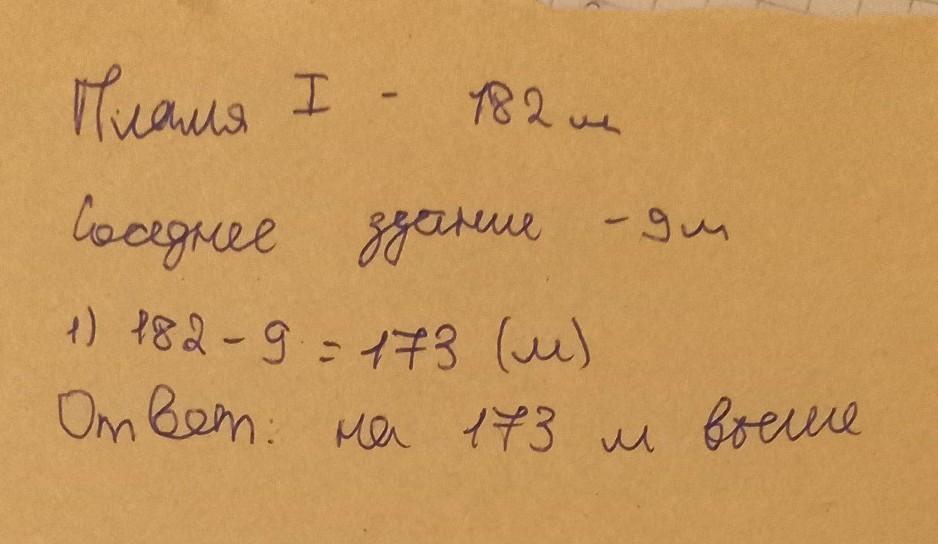 Пламя I - 182 м
Соседнее здание - 9м
1) 182 - 9 = 173 (м)
Ответ: на 173 м выше